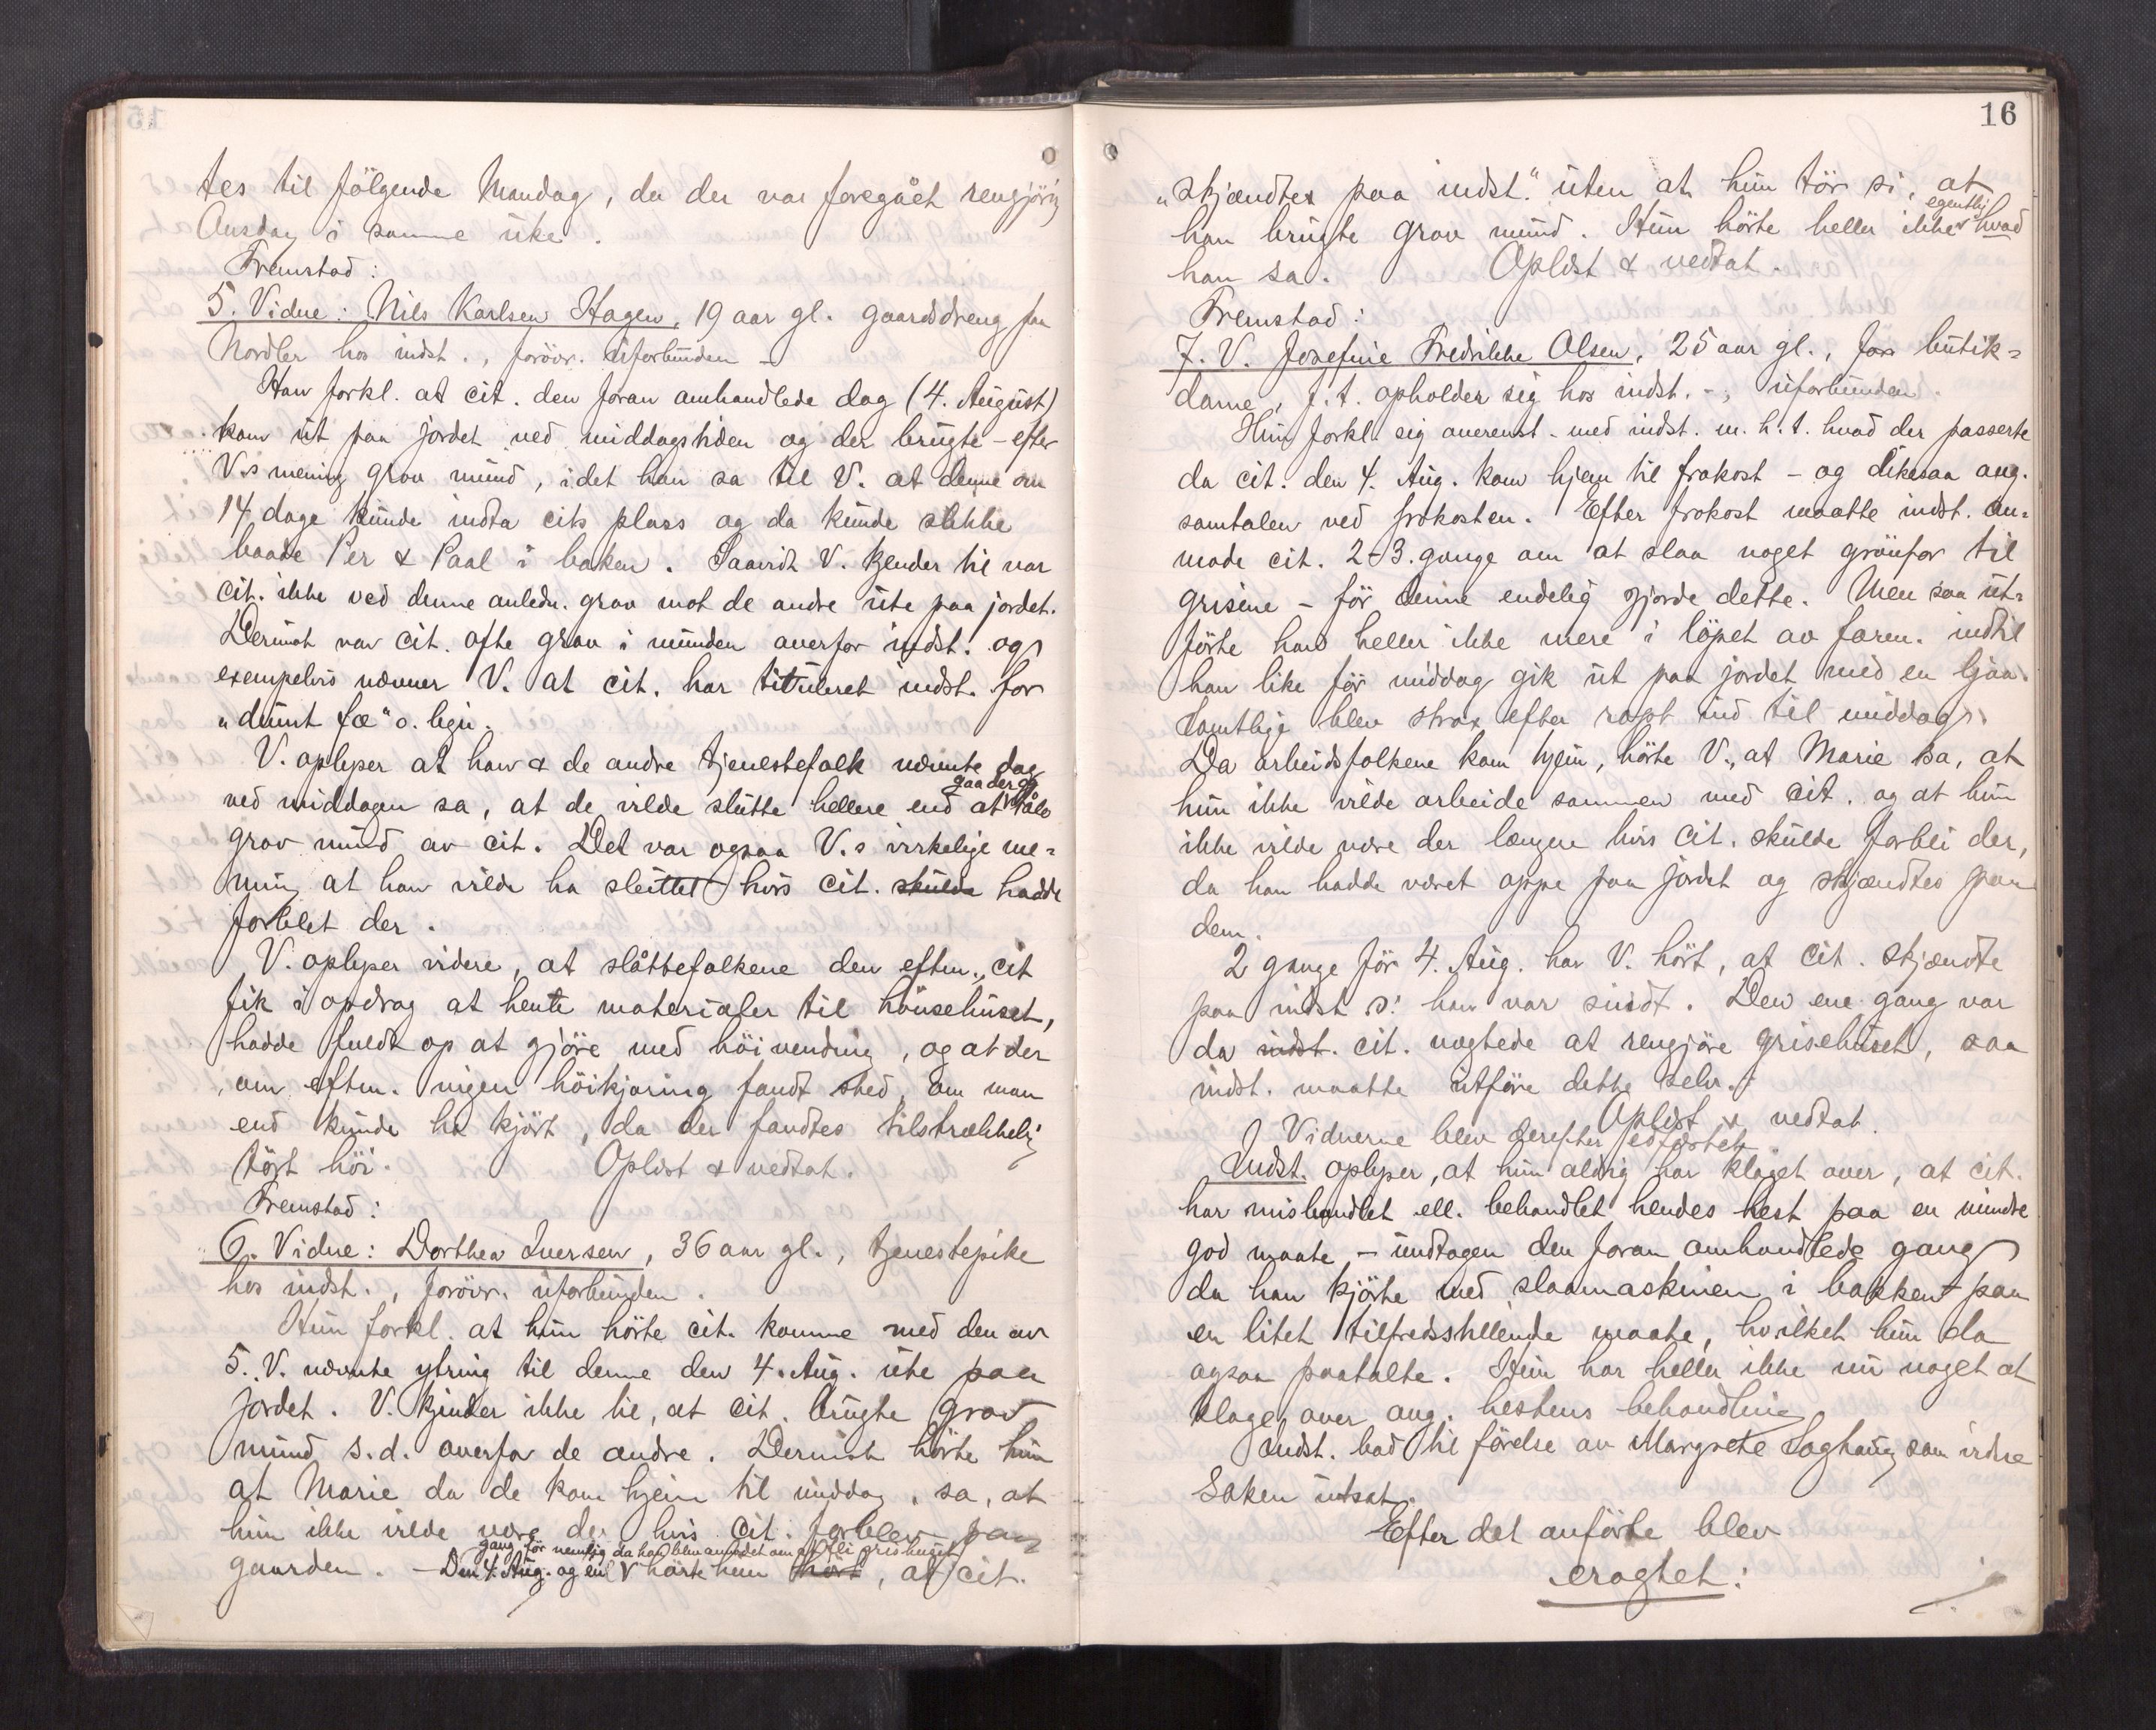 tes til følgende Mandag, da der var foregåët rengjøring
Onsdag i samme uke.
Fremstod:
5. Vidne: Nils Karlsen Hagen, 19 aar gl. gaardsdreng paa
Nordler hos indst., forøvr. uforbunden –
Han forkl. at cit. den foran omhandlede dag (4. August)
kom ut paa jordet ved middagstiden og der brugte – efter
V.s mening grov mund, idet han sa til V. at denne om
14 dage kunde indta cits plass og da kunde slikke
baade Per & Paal i baken. Saavidt V. kjender til var
cit. ikke ved denne anledn. grov mot de andre ute paa jordet.
Derimot var cit. ofte grov i munden overfor indst. og
exempelvis nævner V. at cit. har tituleret indst. for
„dumt fæ“ o. lign.
V. oplyser at han & de andre tjenestefolk nævnte dag
ved middagen sa, at de vilde slutte hellere end at gaa der og tåle
grov mund av cit. Det var ogsaa V.s virkelige me-
ning at han vilde ha sluttet hvis cit. skulde hadde
forblet der.
V. oplyser videre, at slåttefolkene den efterm., cit
fik i opdrag at hente materialer til hönsehuset,
hadde fuldt op at gjöre med höivending, og at der
om efterm. ingen höikjöring fandt sted, om man
end kunde ha kjört, da der fandtes tilstrækkelig
tört höi. Oplæst & vedtat.
Fremstod:
6. Vidne: Dorthea Iversen, 36 aar gl., tjenestepike
hos indst., forövr. uforbunden.
Hun forkl. at hun hörte cit. komme med den av
5. V. nævnte ytring til denne den 4. Aug. ute paa
jordet. V. kjender ikke til, at cit. brugte grov
mund s.d. overfor de andre. Derimot hörte hun
at Marie da de kom hjem til middag, sa, at
hun ikke vilde være der hvis cit. forblev paa
gang för nemlig da han blev anmodet om at fli grishuset
gaarden. – Den 4. Aug. og en V hörte hun hört, at cit.
16
„skjændtes paa indst.“ uten at hun tör si, at
han brugte grov mund. Hun hörte heller ikke egentlig hvad
han sa. Oplæst & vedtat.
Fremstod:
7. V. Josefine Fredrikke Olsen, 25 aar gl., før butik-
dame, f.t. opholder sig hos indst. –, uforbunden.
Hun forkl. sig overenst. med indst. m.h.t. hvad der passerte
da cit. den 4. Aug. kom hjem til frokost – og likesaa ang.
samtalen ved frokosten. Efter frokost maatte indst. an-
mode cit. 2-3 gange om at slaa noget grönfor til
grisene – för denne endelig gjorde dette. Men saa ut-
förte han heller ikke mere i löpet av form. indtil
han like för middag gik ut paa jordet med en ljaa.
Samtlige blev strax efter ropt ind til middag.
Da arbeidsfolkene kom hjem, hörte V., at Marie sa, at
hun ikke vilde arbeide sammen med cit. og at hun
ikke vilde være der længer hvis cit. skulde forbli der,
da han hadde været oppe paa jordet og skjændtes paa
dem.
2 gange för 4. Aug. har V. hört, at cit. skjændte
paa indst. o: han var sindt. Den ene gang var
da indst. cit. nægtede at rengjöre grisehuset, saa
indst. maatte utföre dette selv.
Oplæst & vedtat.
Vidnerne blev derefter edfæstet.
Indst. oplyser, at hun aldrig har klaget over, at cit.
har mishandlet ell. behandlet hendes hest paa en mindre
god maate – undtagen den foran omhandlede gang
da han kjörte med slaamaskinen i bakken – paa
en litet tilfredsstillende maate, hvilket hun da
ogsaa paatalte. Hun har heller ikke nu noget at
klage over ang. hestens behandling.
Indst. bad til förelse av Margrete Saghaug som vidne
Saken utsat.
Efter det anförte blev
eragtet: